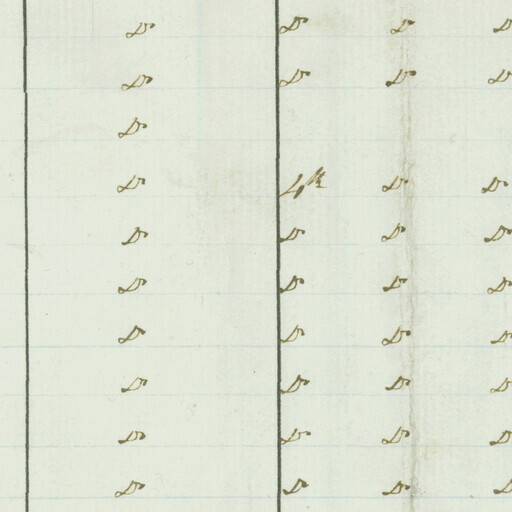 Do Do Do Do
Do Do Do Do
Do
Do 4th Do Do
Do Do Do Do
Do Do Do Do
Do Do Do Do
Do Do Do Do
Do Do Do Do
Do Do Do Do